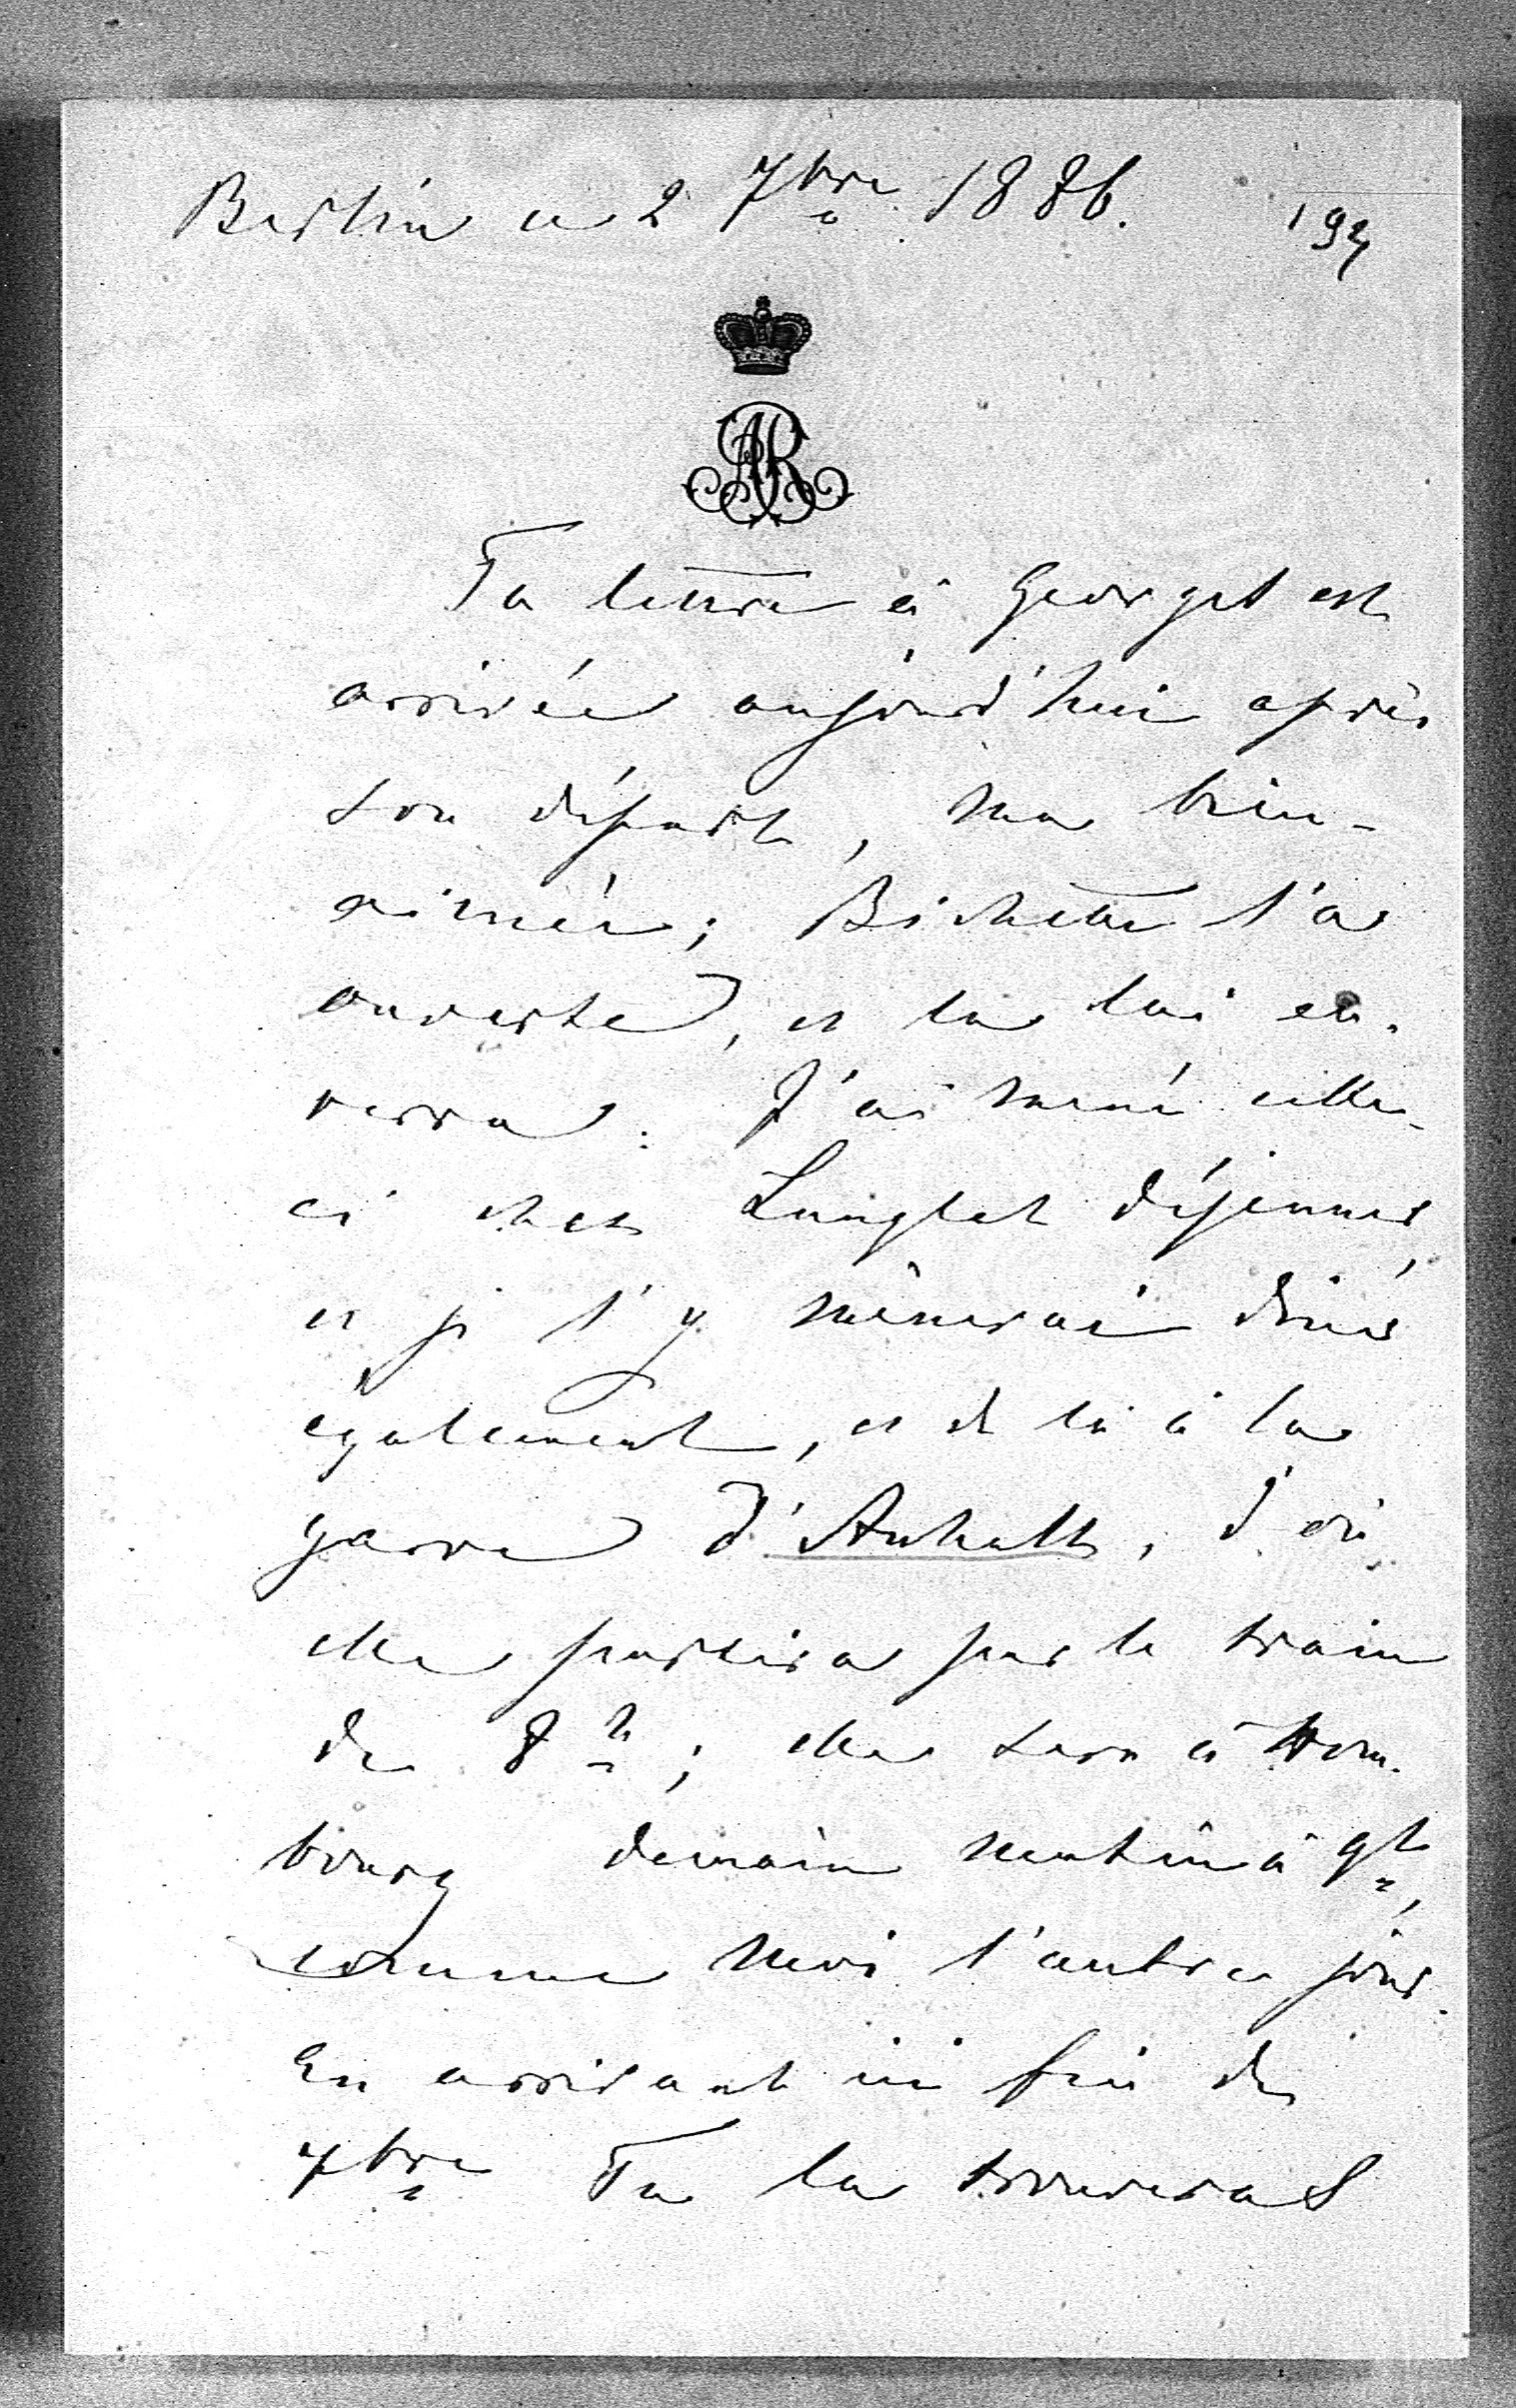 Berlin ce 2 7bre 1886. 194
AR
Ta lettre à Georges est
arrivée aujourd'hui après
son départ, ma bien-
aimée; Bichette l'a
ouverte, et la lui en-
verra. J'ai mené celle-
ci chez Langlet déjeuner,
et je l'y mènerai dîner
également, et de là à la
gare d'Anhalt, d'où
elle partira par le train
de 8h; elle sera à Hom-
bourg demain matin à 9h,
comme moi l'autre jour.
En arrivant ici fin de
7bre Tu la trouveras